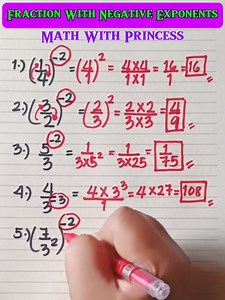 Fraction With Negative Exponents
Math With Princess
1.) (1/4)^-2 = (4/1)^2 = 4×4/1×1 = 16/1 = 16
2.) (3/2)^-2 = (2/3)^2 = 2×2/3×3 = 4/9
3.) 5/3^-2 = 1/3×5^2 = 1/3×25 = 1/75
4.) 4/3^-3 = 4×3^3/1 = 4×27 = 108
5.) (7/3^2)^-2